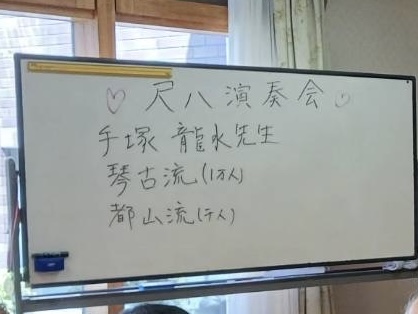 ♡ 尺八演奏会 ♡
手塚 龍水先生
琴古流(1万人)
都山流(千人)